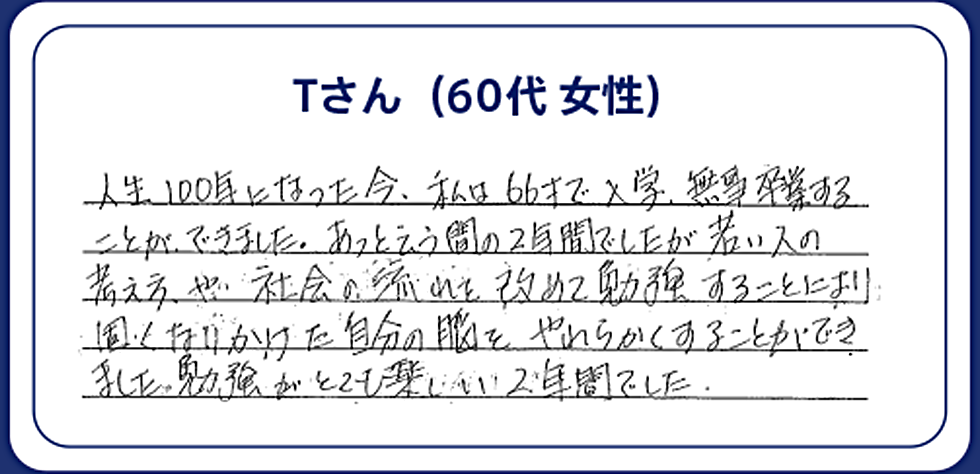 Tさん（60代 女性）
人生100年になった今、私は66才で入学、無事卒業する
ことが、できました。あっと云う間の2年間でしたが若い人の
考え方、や、社会の流れを改めて勉強することにより
固くなりかけた自分の脳をやわらかくすることができ
ました。勉強がとても楽しい2年間でした.